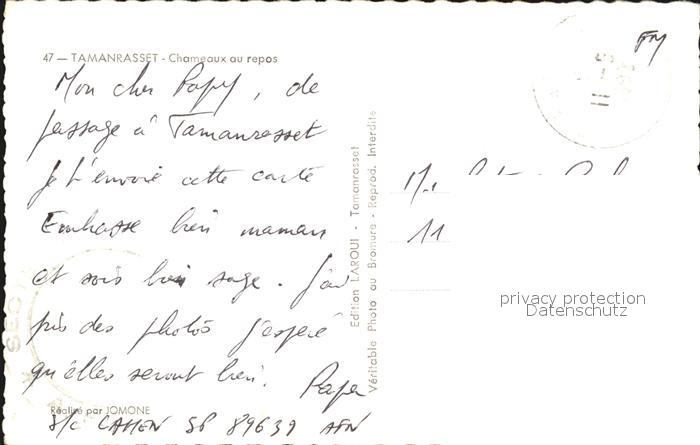 47 — TAMANRASSET - Chameaux au repos
Mon cher Papy, de
passage à Tamanrasset
je t'envoie cette carte
Embrasse bien maman
et sois bien sage. J'ai
pris des photos j'espère
qu'elles seront bien.
Papa
Réalisé par JOMONE
S/c CAHEN SP 89639 AFN
Edition LAROUI - Tamanrasset
Véritable Photo au Bromure - Reprod. Interdite
FM
11
privacy protection
Datenschutz